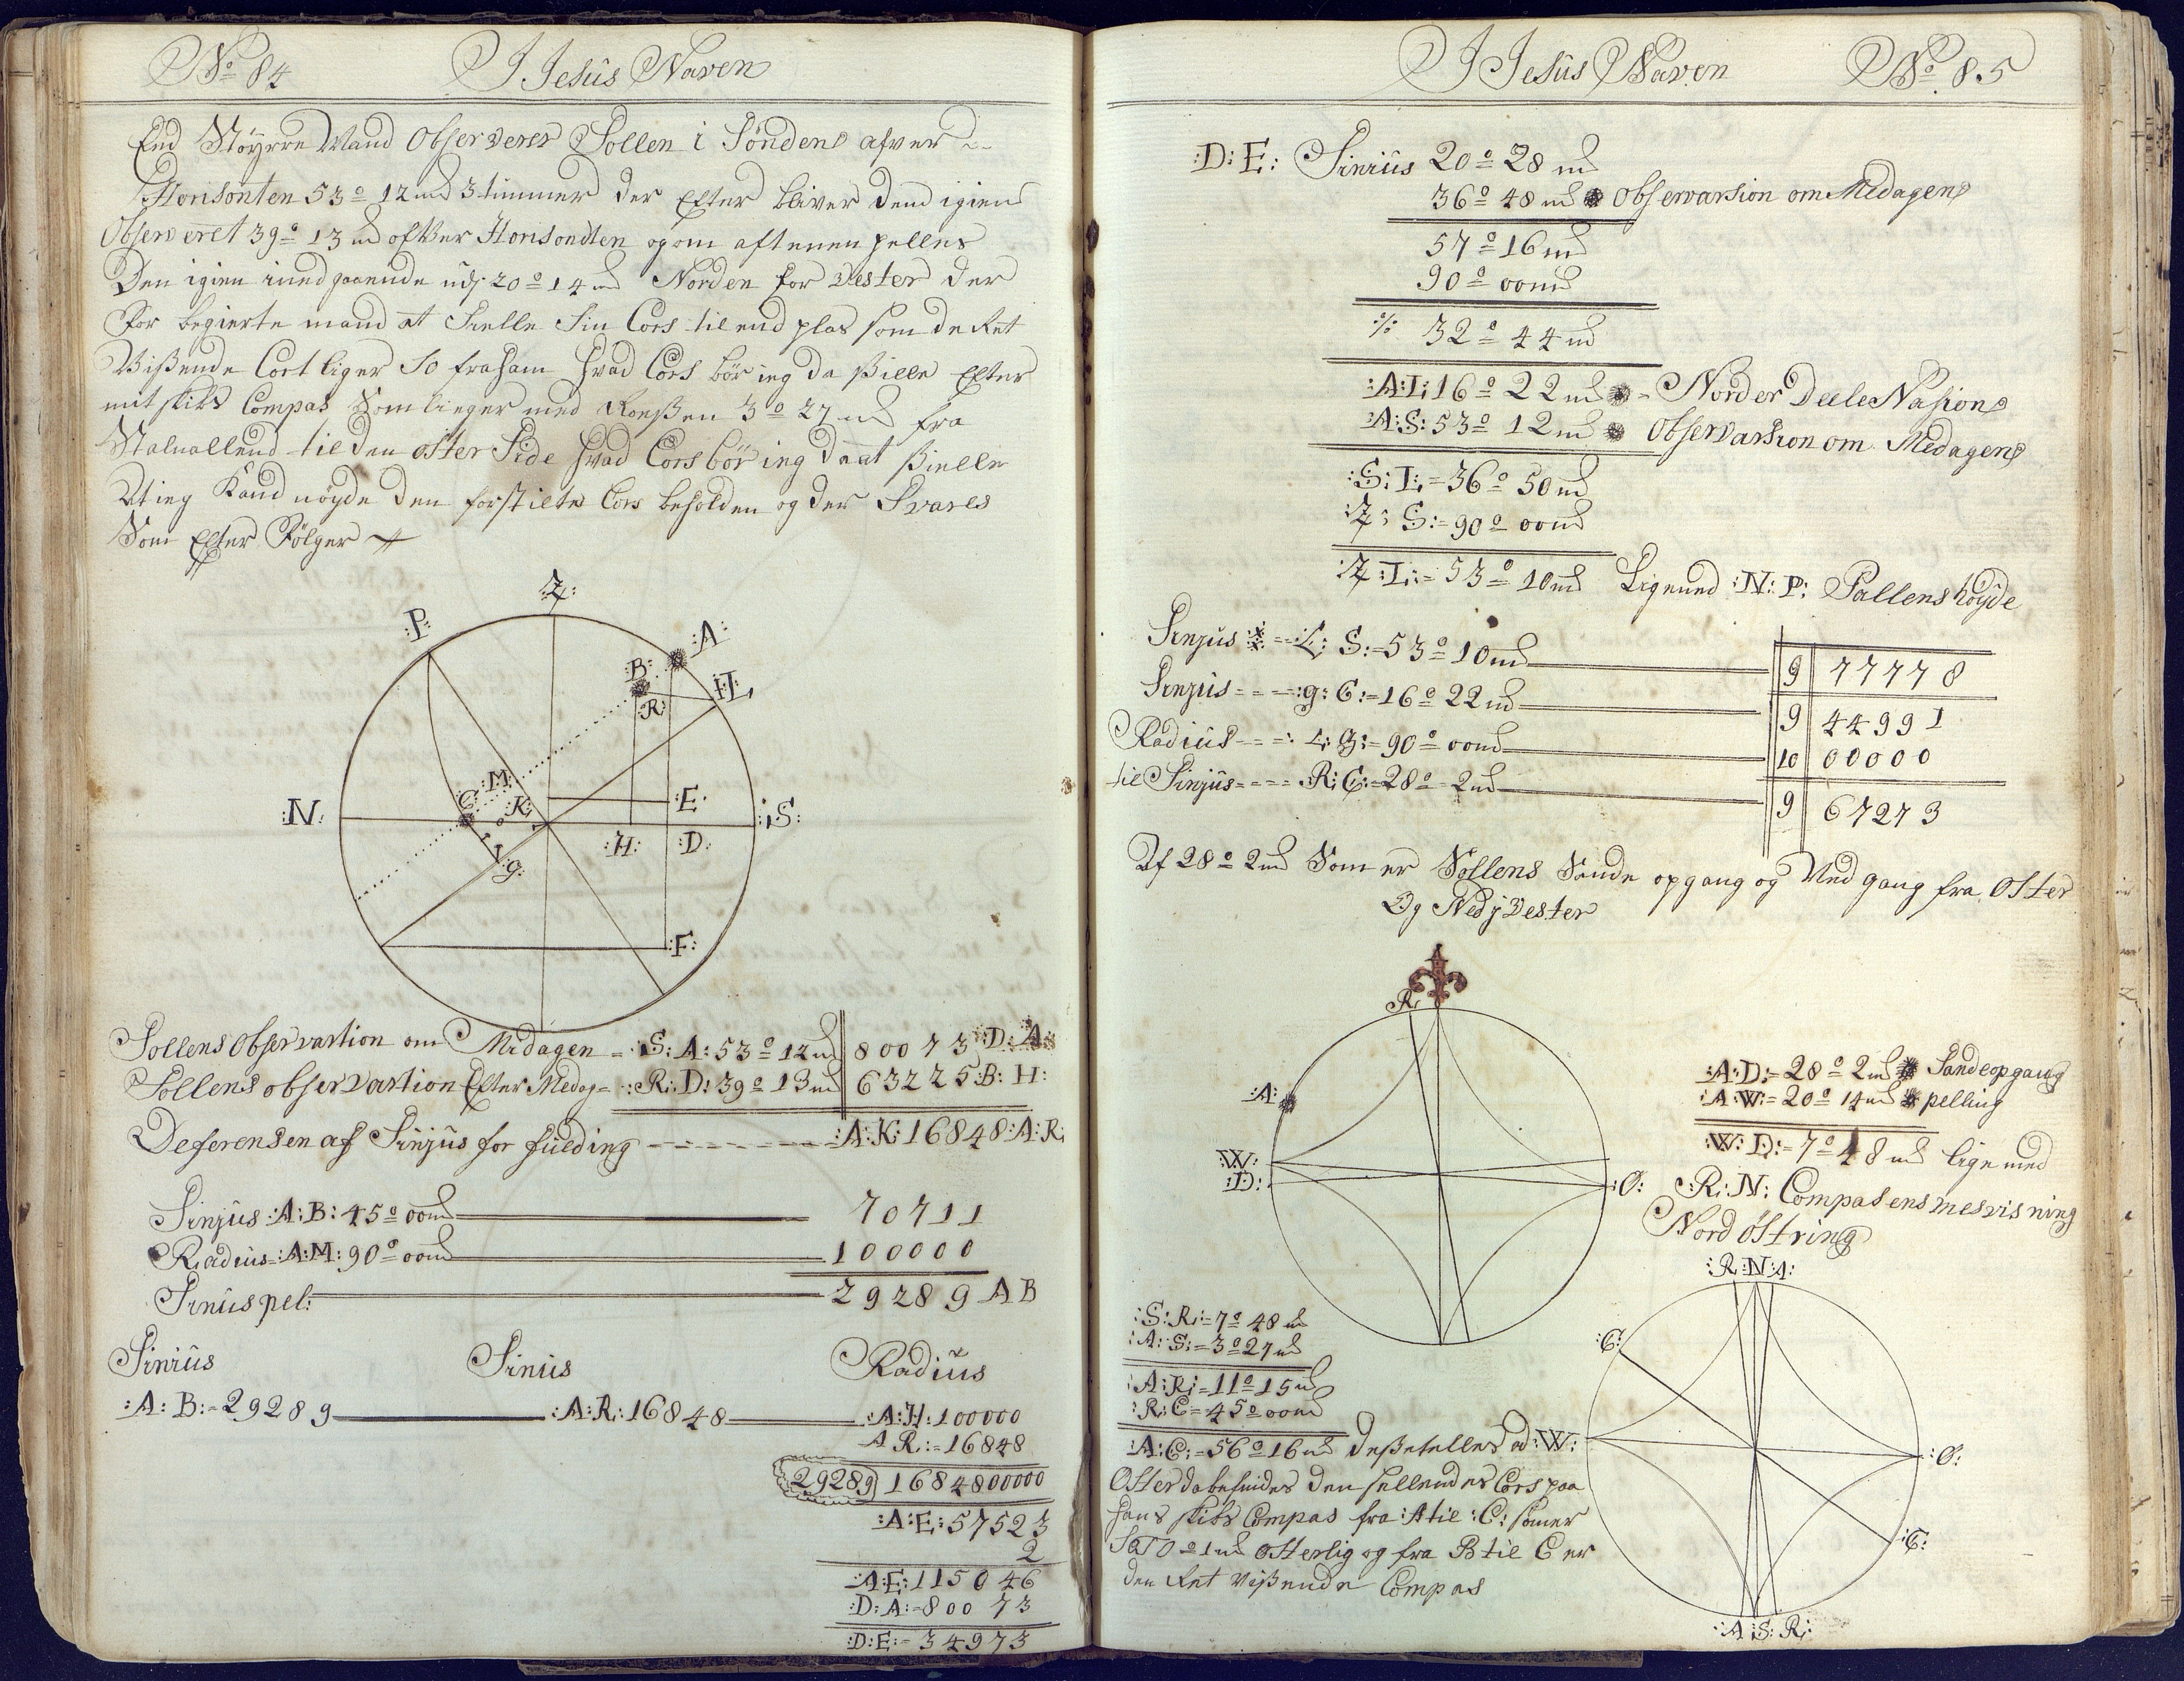 No 84 I Iesüs Naven
End Støÿrre Mand Observerer Sollen i Søndens afver
Horisonten 53° 12 md 3 timmer der Efter bliver dend igien
Observeret 39° 13 md ofver Horisondten og om aftenen pelles
Den igien needgaaende udj 20° 14 md Norden for Vester der
For begierte mand at Sielle Sin Cors til end plas som de Ret
Vißende Cort liger SO fra ham hvad Cors bör ieg da ßielle Efter
mit skibs Compas Som lieger med Roeßen 3° 27 md fra
Staluallend til den öster Side hvad Cors bör ieg da at ßielle
At ieg Kand nöyde den forstielte Cors beholden og der Svares
Som Efter Fölger
:Z:
:P:
:A:
:B:
:Æ:
:R:
:M:
:C:
:K:
:N:
:E:
:S:
:H:
:D:
:g:
:F:
Sollens Observastion om Medagen =:S:A: 53° 12 md 80073 :D:A:
Sollens observastion Efter Medag =:R:D: 39° 13 md 63225 :B:H:
Deferensen af Sinjüs for füelding :A:K: 16848 :A:R:
Sinjüs :A:B: 45° 00 md 70711
Radius = :A:M: 90° 00 md 100000
Sinüs pel: 29289 A B
Siniüs Sinüs Radiüs
:A:B:=29289 :A:R: 16848 :A:H: 100000
A R:=16848
29289) 1684800000
:A:E: 57523
2
:A:E: 115046
:D:A:=80073
:D:E:=34973
I Iesüs Naven No. 85
:D:E: Siniüs 20° 28 md
36° 48 md Observarsion om Medagen
57° 16 md
90° 00 md
% 32° 44 md
:A:Æ: 16° 22 md = Norder Deele Nasion
:A:S: 53° 12 md Observarsion om Medagen
:S:Æ:=36° 50 md
:Z:S:=90° 00 md
:Z:Æ:=53° 10 md Ligmed :N:P: Pollens höÿde
Sinjüs :Æ:S:=53° 10 md 9 77778
Sinjüs :g:C:=16° 22 md 9 44991
Radiüs :Æ:Z:=90° 00 md 10 00000
til Sinjüs :R:C:=28° 2 md 9 67273
Af 28° 2 md Som er Sollens Sande opgang og Ned gang fra Oster
Og Nedj Vester
R:
:A:
:W:
:D:
:O:
:A:D:=28° 2 md Sande opgang
:A:W:=20° 14 md pelling
:W:D:=7° 48 md lige med
:R:N: Compasens mesvisning
Nord östring
:R:N:A:
:S:R:=7° 48 md
:A:S:=3° 27 md
:A:R:=11° 15 md
:R:C=45° 00 md
:A:C:=56° 16 md deßetelles ad :W:
Oster da befindes den sellendes Cors paa
hans skibs Compas fra :A til :C: som er
SOTO 1 md Osterlig og fra R til C er
den Ret Vißende Compas
:C:
:O:
:C:
:A:S:R: